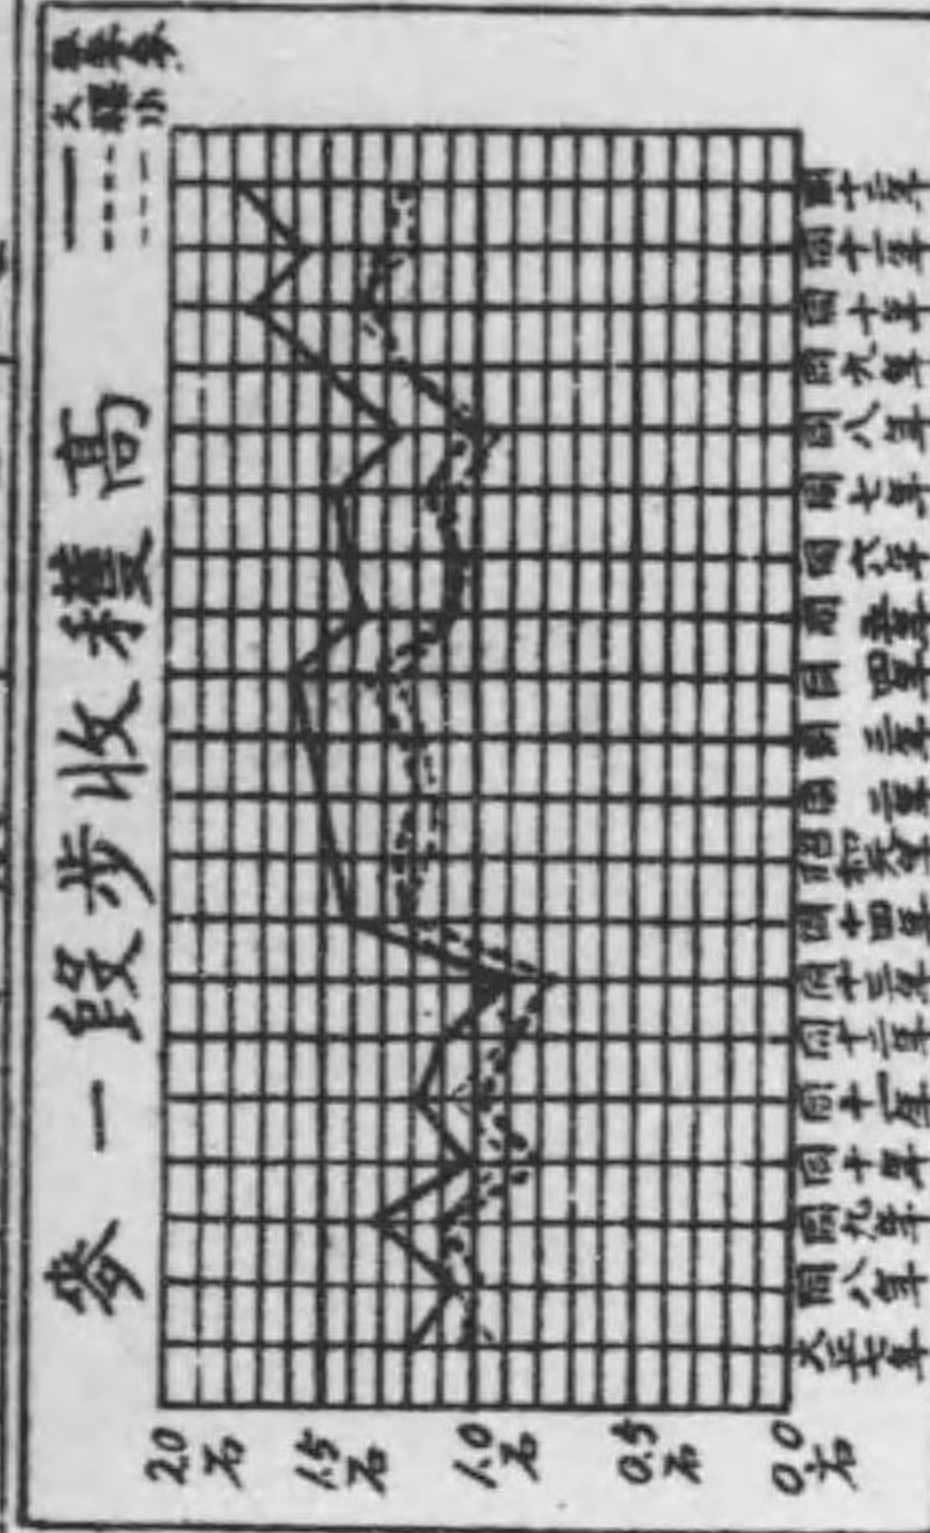 麥一段步收穫高
大麥
裸麥
小麥
2.0石
1.5石
1.0石
0.5石
0.0石
大正七年
同八年
同九年
同十年
同十一年
同十二年
同十三年
同十四年
昭和元年
同二年
同三年
同四年
同五年
同六年
同七年
同八年
同九年
同十年
同十一年
同十二年